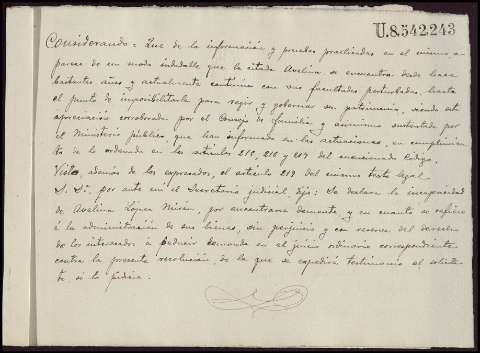 U.8.542.243
Considerando: Que de la información y pruebas practicadas en el mismo, a-
parece de un modo indudable que la citada Avelina, se encuentra desde hace
bastantes años y actualmente continúa con sus facultades perturbadas, hasta
el punto de imposibilitarla para regir y gobernar su patrimonio, siendo esta
apreciación corroborada por el Consejo de familia y asimismo sustentada por
el Ministerio público, que han informado en las actuaciones, en cumplimien-
to de lo ordenado en los artículos 216, y 217 del mencionado Código.
Visto, además de los expresados, el artículo 219 del mismo texto legal.
S. Sª, por ante mí el Secretario judicial, dijo: Se declara la incapacidad
de Avelina López, por encontrarse demente, y en cuanto se refiere
á la administración de sus bienes, sin perjuicio y con reserva del derecho
de los interesados á deducir demanda en el juicio ordinario correspondiente
contra la presente resolución, de la que se expedirá testimonio al solicitan-
te, si lo pidiere.